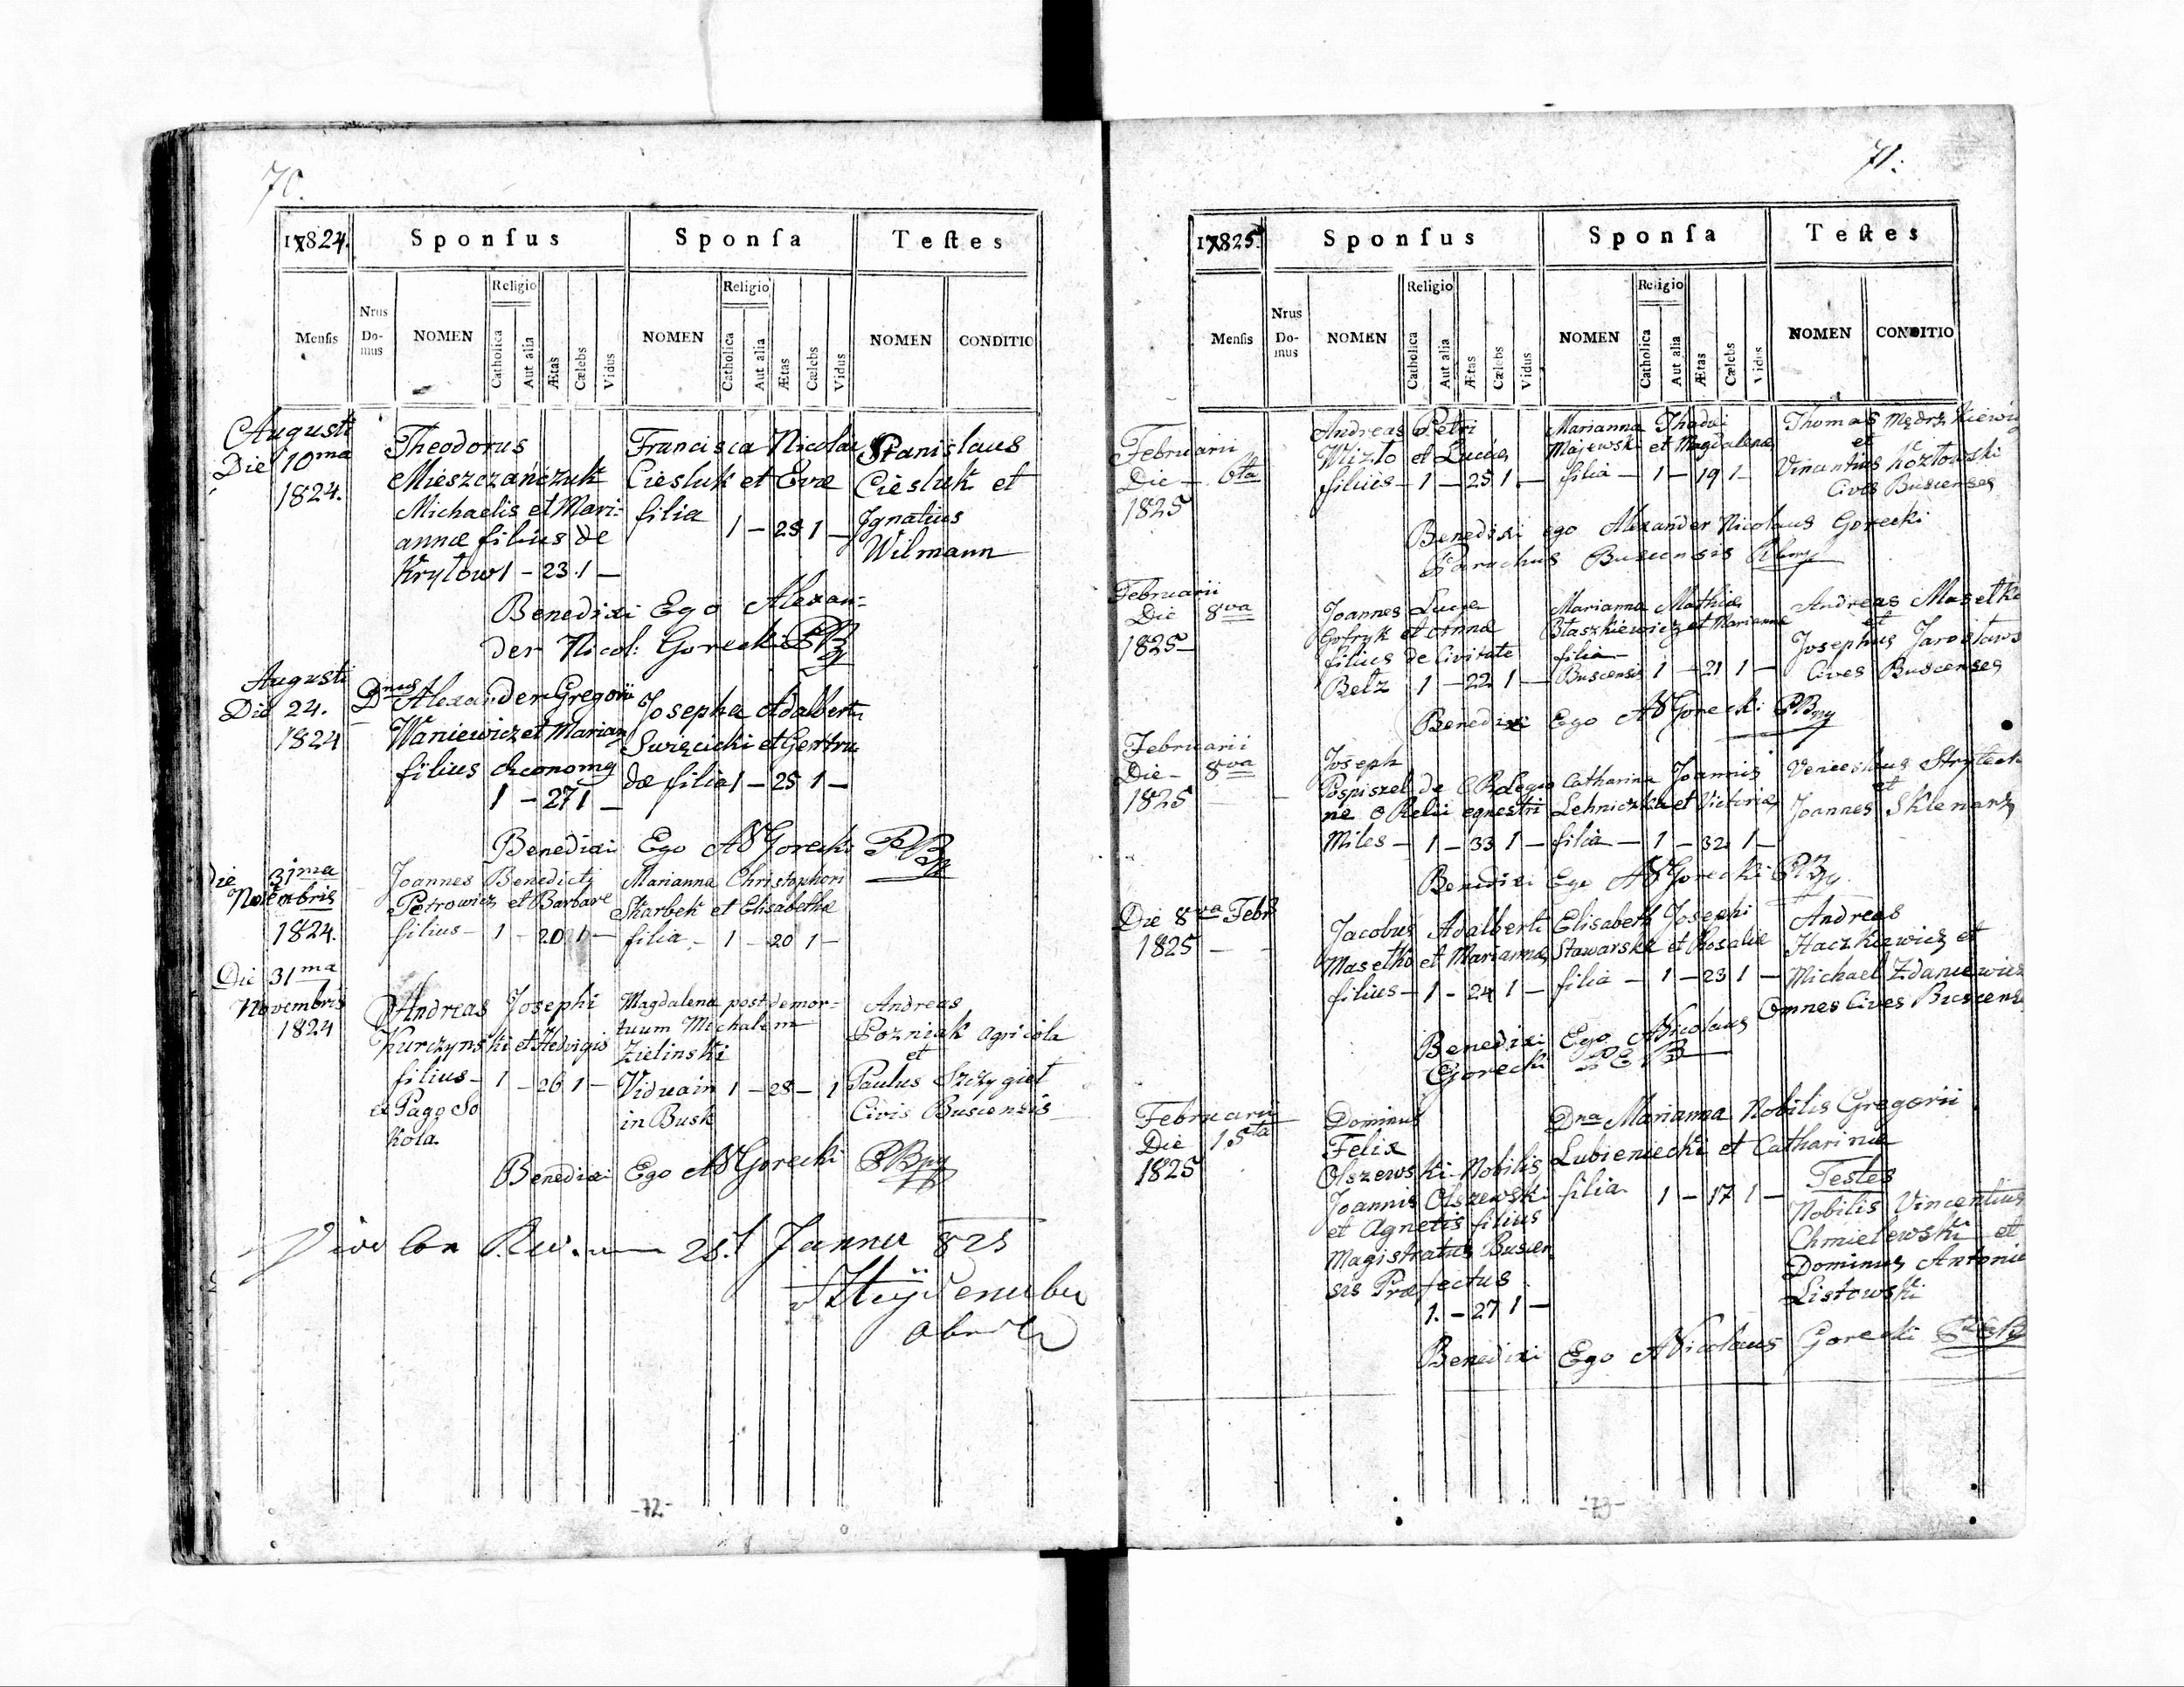 70.
17824. Sponſus Sponſa Teſtes
Menſis Nrus Domus NOMEN Religio Catholica Aut alia Ætas Cælebs Vidus NOMEN Religio Catholica Aut alia Ætas Cælebs Vidus NOMEN CONDITIO
Augusti Die 10ma 1824.
Theodorus
Mieszczańczuk
Michaelis et Mari-
annæ filius de
Kryłow 1 – 23 1 –
Francisca Nicolai
Ciesluk et Evæ
filia 1 – 28 1 –
Stanislaus
Ciesluk et
Ignatius
Wilmann
Benedixi Ego Alexan-
der Nicol: Gorecki
Augusti
Die 24.
1824
Dnus Alexander Gregorii
Waniewicz et Marian
filius Œconomg
1 – 27 1 –
Josepha Adalberti
Swięcicki et Gertru
dæ filia 1 – 25 1 –
Benedixi Ego AN Gorecki
Die 31ma
Novembris
1824.
Joannes Benedicti
Petrowicz et Barbare
filius – 1 – 20 1 –
Marianna Christophori
Skarbek et Elisabethæ
filia – 1 – 20 1 –
Die 31ma
Novembris
1824
Andreas Josephi
Kurczynski et Hedvigis
filius – 1 – 26 1 –
ex Pago So
kola.
Magdalena post demor-
tuum Michalem
Zielinski
Viduam 1 – 28 – 1
in Busk
Andreas
Pozniak agricola
et
Paulus Szczygieł
Civis Buscensis
Benedixi Ego AN Gorecki
28. Janner 825
71.
17825. Sponſus Sponſa Teſtes
Menſis Nrus Domus NOMEN Religio Catholica Aut alia Ætas Cælebs Vidus NOMEN Religio Catholica Aut alia Ætas Cælebs Vidus NOMEN CONDITIO
Februarii
Die – 6ta
1825
Andreas Petri
Wizło et Luciæ
filius – 1 – 25 1 –
Marianna Thadæi
Majewski et Magdalenæ
filia – 1 – 19 1 –
Thomas Mędrzkiewicz
et
Vincentius Kozłowski
Cives Buscenses
Benedixi ego Alexander Nicolaus Gorecki
Parochus Buscensis
Februarii
Die 8va
1825 –
Joannes Lucæ
Gofryk et Annæ
filius de Civitate
Bełz 1 – 22 1 –
Marianna Mathiæ
Błaszkiewicz et Marianne
filia –
Buscensis 1 – 21 1 –
Andreas Masełko
et
Josephus Jarosławs
Cives Buscenses
Benedixi Ego AN Gorecki
Februarii
Die – 8va
1825
Joseph
Pospiszel de
equestri
Miles – 1 – 33 1 –
Catharina Joannis
Lehniczka et Victoriæ
filia – 1 – 32 1 –
Venceslaus
et
Joannes Sklenarz
Benedixi Ego AN Gorecki
Die 8va Febr
1825 –
Jacobus Adalberti
Masełko et Mariannæ
filius – 1 – 24 1 –
Elisabeth Josephi
Stawarske et Rosaliæ
filia – 1 – 23 1 –
Andreas
Haczkiewicz et
Michael Zdaniewicz
Omnes Cives Buscens
Benedixi Ego ANicolaus
Gorecki
Februarii
Die 15ta
1825
Dominus
Felix
Olszewski Nobilis
Joannis Olszewski
et Agnetis filius
Magistratus Buscen
sis Præfectus
1. – 27 1 –
Dna Marianna Nobilis Gregorii
Lubieniecki et Catharinæ
filia 1 – 17 1 –
Testes
Nobilis Vincentius
Chmielewski et
Dominus Antoniu
Listowski
Benedixi Ego ANicolaus Gorecki
-72-
-73-